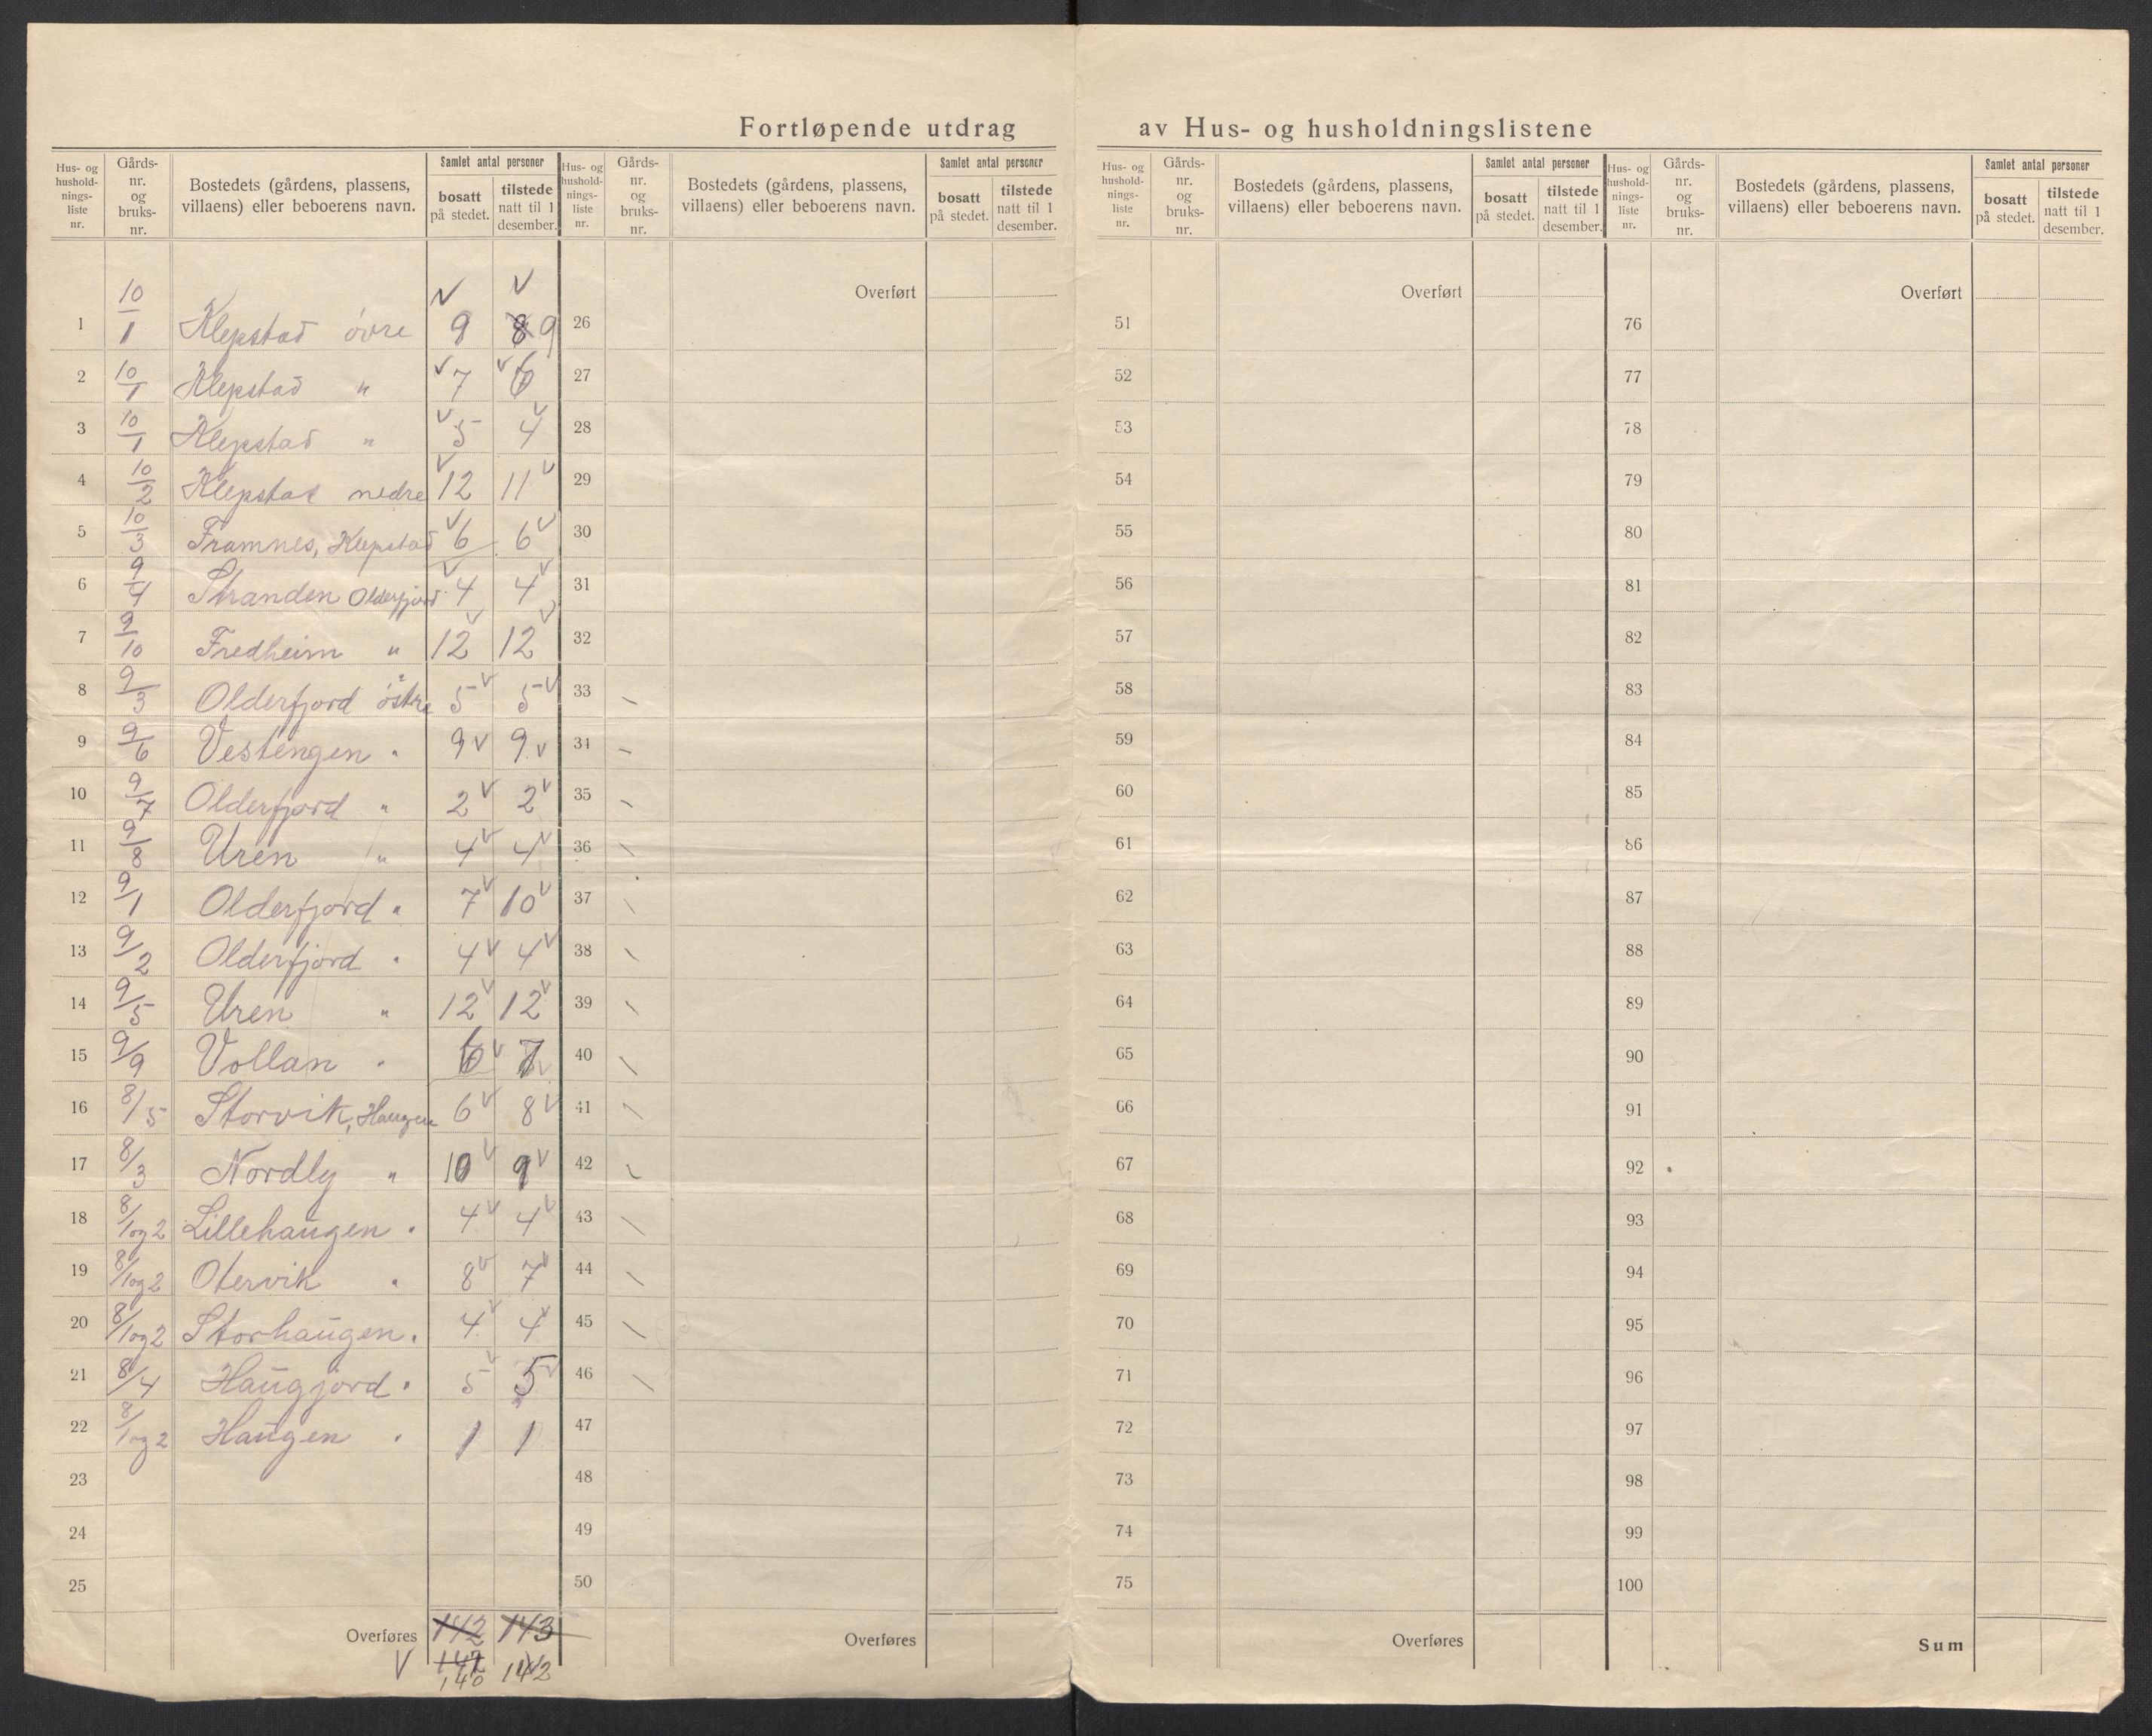 Fortløpende utdrag av Hus- og husholdningslistene
Hus- og hushold- nings- liste nr. | Gårds- nr. og bruks- nr. | Bostedets (gårdens, plassens, villaens) eller beboerens navn. | Samlet antal personer | bosatt på stedet. | tilstede natt til 1 desember.
Hus- og hushold- nings- liste nr. | Gårds- nr. og bruks- nr. | Bostedets (gårdens, plassens, villaens) eller beboerens navn. | Samlet antal personer | bosatt på stedet. | tilstede natt til 1 desember.
1 10/1 Klepstad övre 9 8 9
2 10/1 Klepstad " 7 6
3 10/1 Klepstad " 5 4
4 10/2 Klepstad nedre 12 11
5 10/3 Framnes, Klepstad 6 6
6 9/4 Stranden Olderfjord 4 4
7 9/10 Fredheim " 12 12
8 9/3 Olderfjord östre 5 5
9 9/6 Vestengen " 9 9
10 9/7 Olderfjord " 2 2
11 9/8 Uren " 4 4
12 9/1 Olderfjord " 7 10
13 9/2 Olderfjord " 4 4
14 9/5 Uren " 12 12
15 9/9 Vollan " 6 7
16 8/5 Storvik, Haugen 6 8
17 8/3 Nordly " 10 9
18 8/1 og 2 Lillehaugen " 4 4
19 8/1 og 2 Otervik " 8 7
20 8/1 og 2 Storhaugen " 4 4
21 8/4 Haugjord " 5 5
22 8/1 og 2 Haugen " 1 1
23
24
25
Overføres 142 143
V 141 142
140
Hus- og hushold- nings- liste nr. | Gårds- nr. og bruks- nr. | Bostedets (gårdens, plassens, villaens) eller beboerens navn. | Samlet antal personer | bosatt på stedet. | tilstede natt til 1 desember.
Overført
26
27
28
29
30
31
32
33
34
35
36
37
38
39
40
41
42
43
44
45
46
47
48
49
50
Overføres
Hus- og hushold- nings- liste nr. | Gårds- nr. og bruks- nr. | Bostedets (gårdens, plassens, villaens) eller beboerens navn. | Samlet antal personer | bosatt på stedet. | tilstede natt til 1 desember.
Overført
51
52
53
54
55
56
57
58
59
60
61
62
63
64
65
66
67
68
69
70
71
72
73
74
75
Overføres
Overført
76
77
78
79
80
81
82
83
84
85
86
87
88
89
90
91
92
93
94
95
96
97
98
99
100
Sum